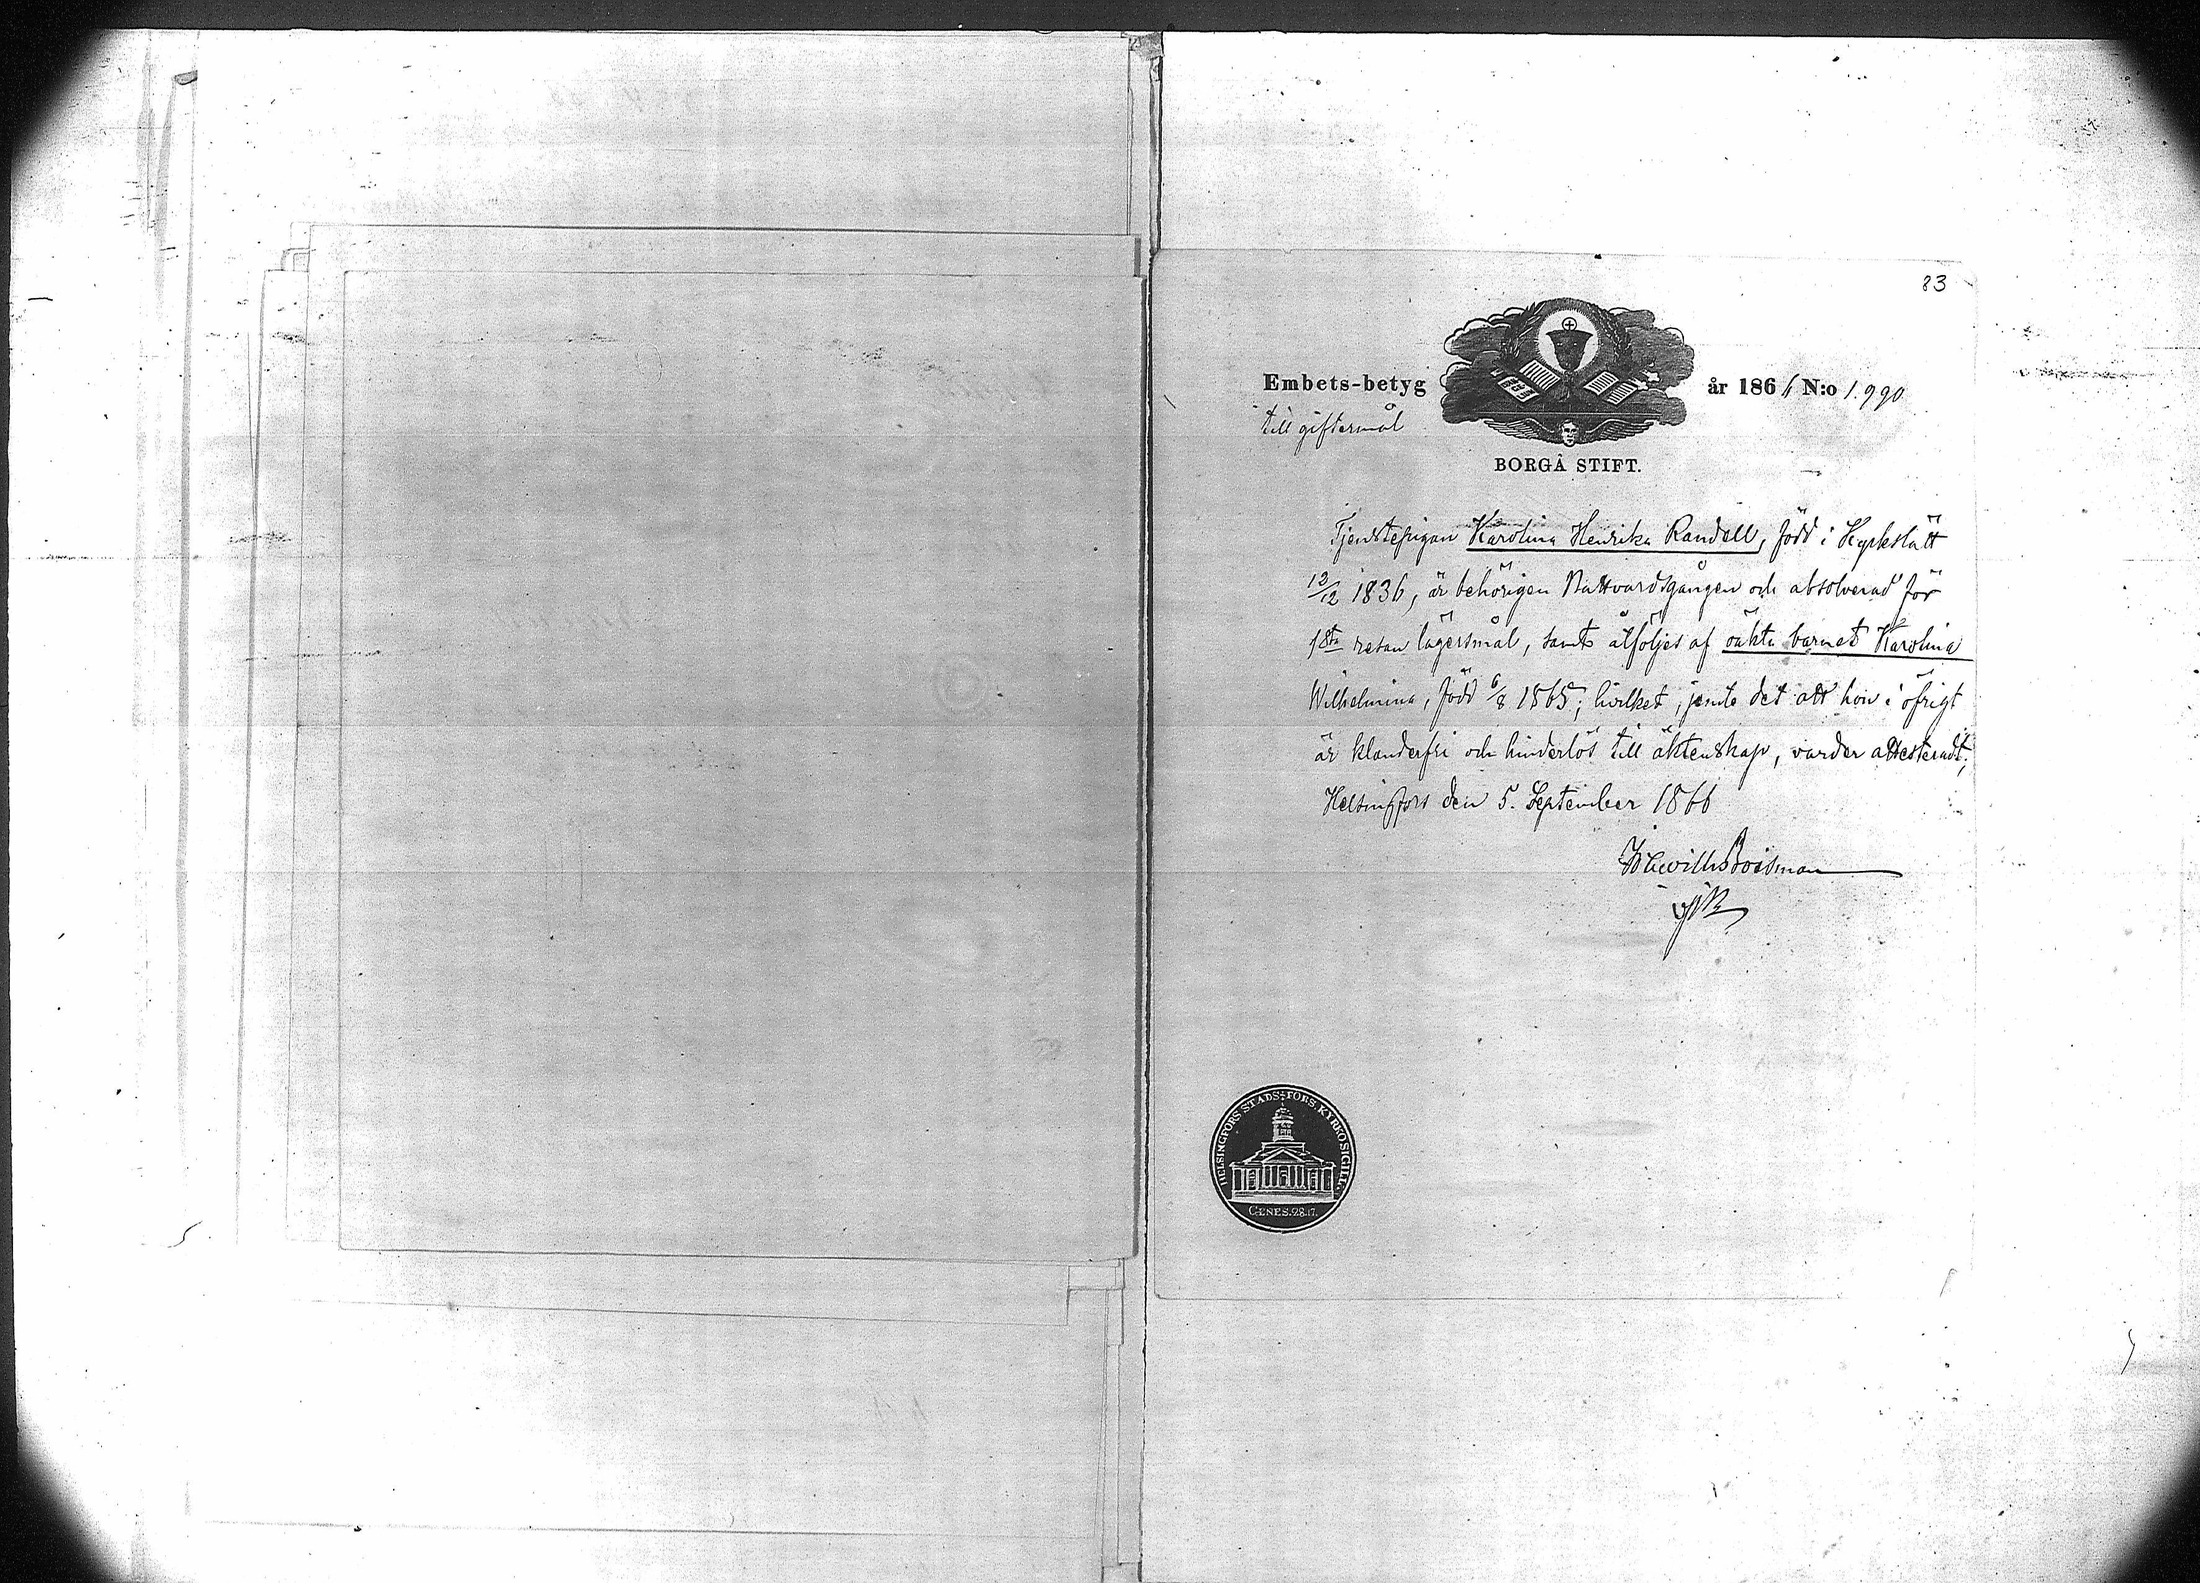 83
Embets-betyg år 1866 N:o 1990
till giftermål
BORGÅ STIFT.
Tjenstepigan Karolina Henrika Randell, född i Kyrkslätt
12/12 1836, är behörigen Nattvardsgången och absolverad för
1sta resan lägersmål, samt åtföljes af oäkta barnet Karolina
Wilhelmina, född 6/8 1865; hvilket, jemte det att hon i öfrigt
är klanderfri och hinderlös till äktenskap, varder attesteradt;
Helsingfors den 5. September 1866
Boisman
HELSINGFORS STADS FÖRS. KYRKOSIGILL.
GENES. 28.17.